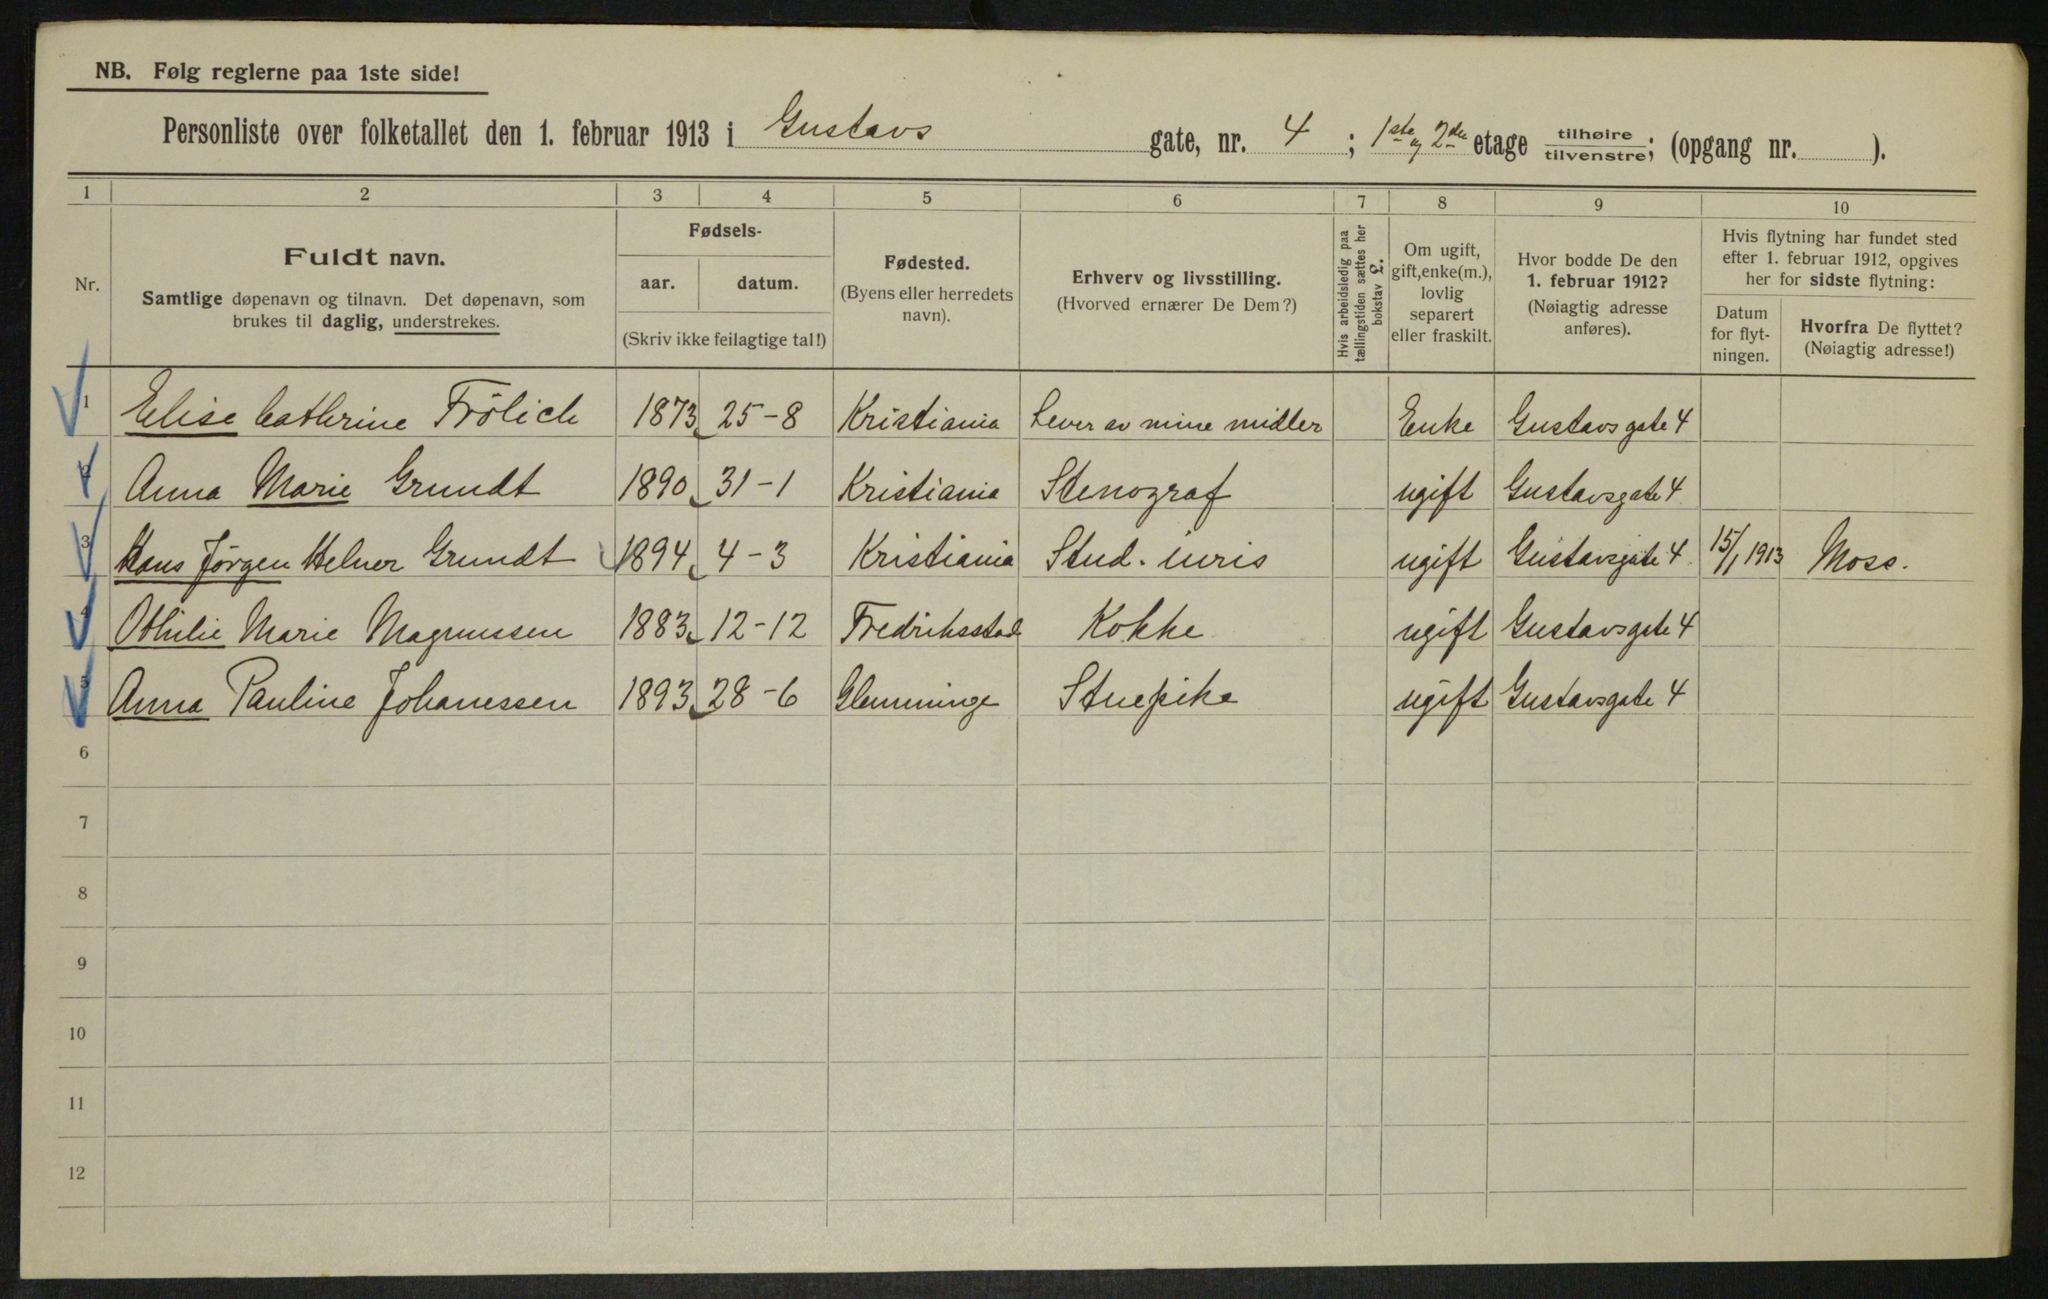 NB. Følg reglerne paa 1ste side!
Personliste over folketallet den 1. februar 1913 i Gustavs gate, nr. 4 ; 1ste og 2den etage tilhøire tilvenstre; (opgang nr. ).
1 2 3 4 5 6 7 8 9 10
Nr.
Fuldt navn.
Samtlige døpenavn og tilnavn. Det døpenavn, som
brukes til daglig, understrekes.
Fødsels-
aar. datum.
(Skriv ikke feilagtige tal!)
Fødested.
(Byens eller herredets
navn).
Erhverv og livsstilling.
(Hvorved ernærer De Dem?)
Hvis arbeidsledig paa
tællingstiden sættes her
bokstav L.
Om ugift,
gift, enke(m.),
lovlig
separert
eller fraskilt.
Hvor bodde De den
1. februar 1912?
(Nøiagtig adresse
anføres).
Hvis flytning har fundet sted
efter 1. februar 1912, opgives
her for sidste flytning:
Datum
for flyt-
ningen.
Hvorfra De flyttet?
(Nøiagtig adresse!)
1 Elise Cathrine Frölich 1873 25-8 Kristiania Lever av mine midler Enke Gustavsgate 4
2 Anna Marie Grundt 1890 31-1 Kristiania Stenograf ugift Gustavsgate 4
3 Hans Jørgen Helner Grundt 1894 4-3 Kristiania Stud. iuris ugift Gustavsgate 4 15/1 1913 Moss.
4 Othilie Marie Magnussen 1883 12-12 Fredriksstad Kokke ugift Gustavsgate 4
5 Anna Pauline Johanessen 1893 28-6 Glemminge Stuepike ugift Gustavsgate 4
6
7
8
9
10
11
12